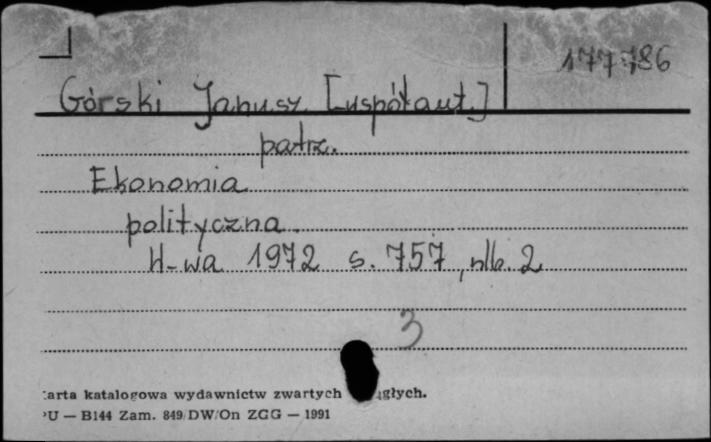 177786
Górski Janusz [współaut.]
patrz.
Ekonomia
polityczna.
W-wa 1972 s. 757, nlb. 2
3
arta katalogowa wydawnictw zwartych głych.
PU — B144 Zam. 849/DW/On ZGG — 1991